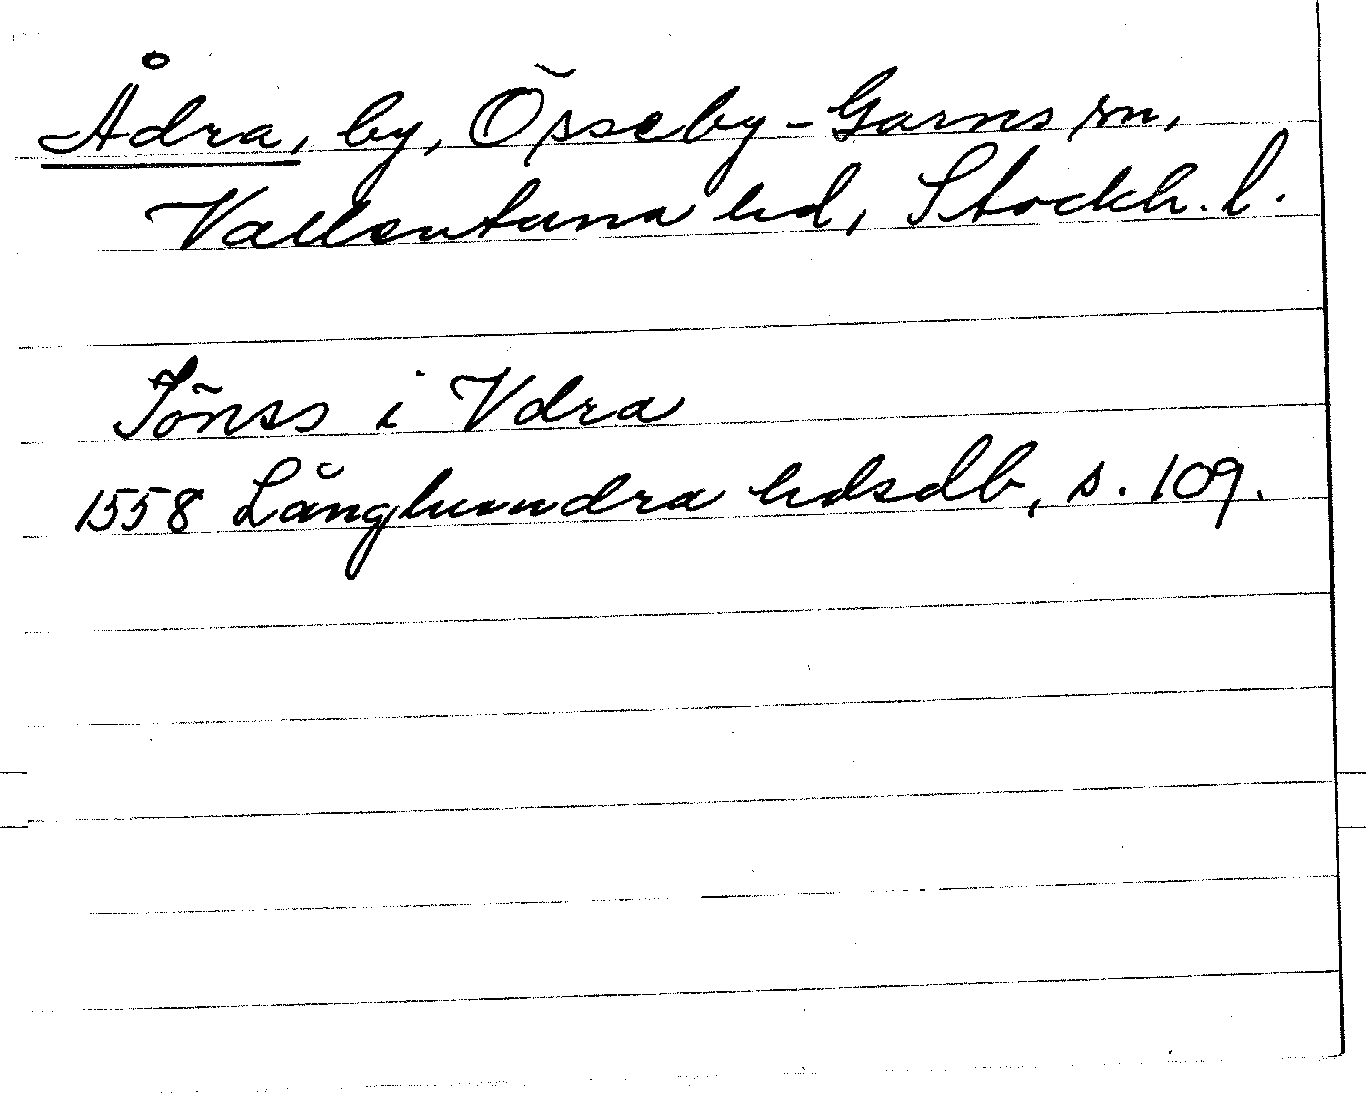 Ådra, by, Össeby-Garns sn,
Vallentuna hd, Stockh. l.
Jönss i Vdra
1558 Långhundra hdsdb, s. 109.